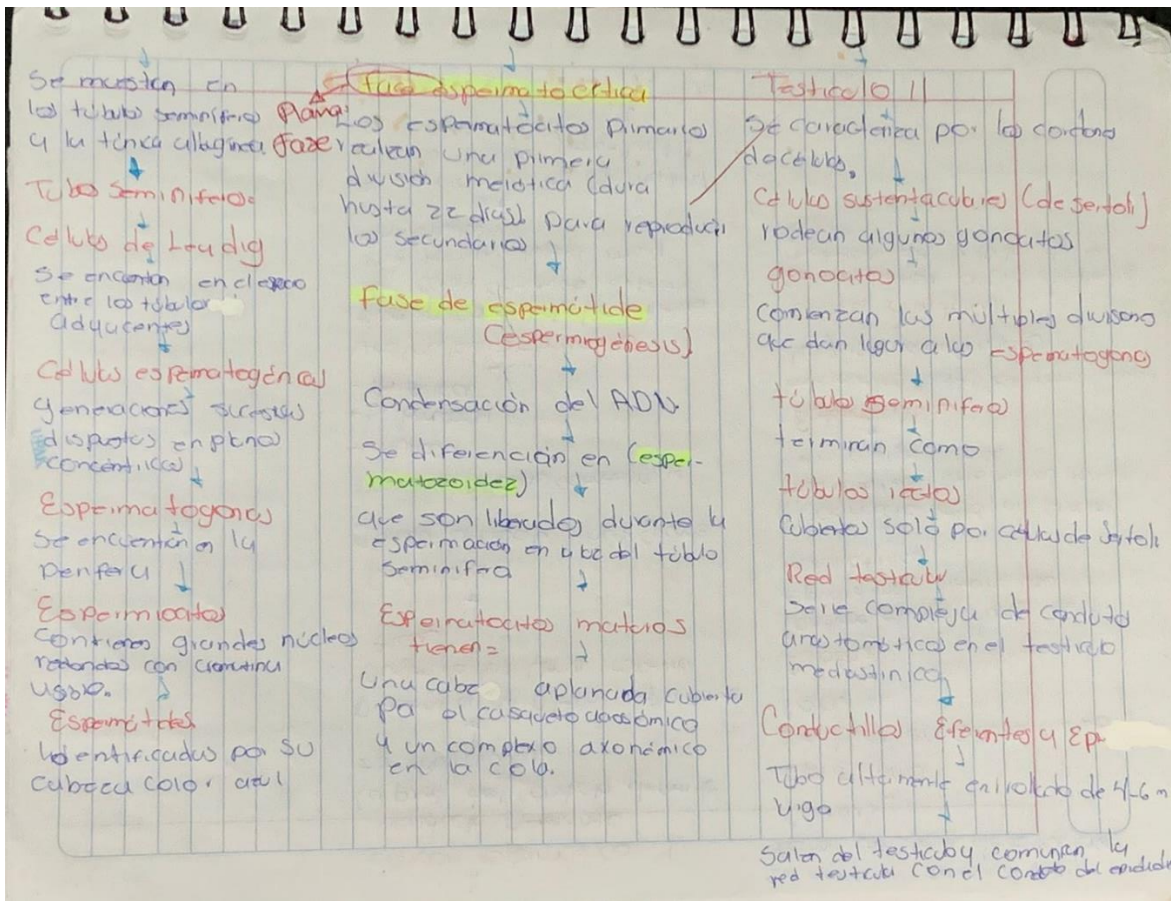 Se muestran en
los túbulos seminíferos
y la túnica albuginea
Tubos Seminiferos.
Células de Leydig
Se encuentran en el espacio
entre los túbulos
adyacentes
Células espermatogénicas
generaciones sucesivas
dispuestas en planos
concéntricos
Espermatogonias
Se encuentran en la
Periferia
Espermicotos
Contienen grandes núcleos
redondos con cromatina
Espermátides
Identificadas por su
cabeza color azul
Plana:
faze
fase espermatocitica
Los espermatocitos primarios
realizan una primera
división meiótica (dura
hasta 22 dias) para reproducir
los secundarios
Fase de espermátide
(espermiogénesis)
Condensación del ADN
Se diferencian en (esper-
matozoidez)
que son liberados durante la
espermación en del túbulo
seminifero
Espermatocitos maduros
tienen=
Una cabe aplanada cubierta
por el casquete acrosómico
y un complexo axonémico
en la cola.
Testiculo II
Se caracteriza por los cordones
Células sustentaculares (de Sertoli)
rodean algunos gonocitos
gonocitos
Comienzan las múltiples divisiones
que dan lugar a las espermatogonias
túbulos seminiferos
terminan como
túbulos rectos
Cubiertos solo por células de Sertoli
Red testicular
Serie compleja de conductos
anastomóticos en el testiculo
mediastinico
Conductillos Eferentes y Ep
Tubo altamente enrollado de 4-6 m
Salen del testiculo y comunican la
red testicular con el conducto del epididi